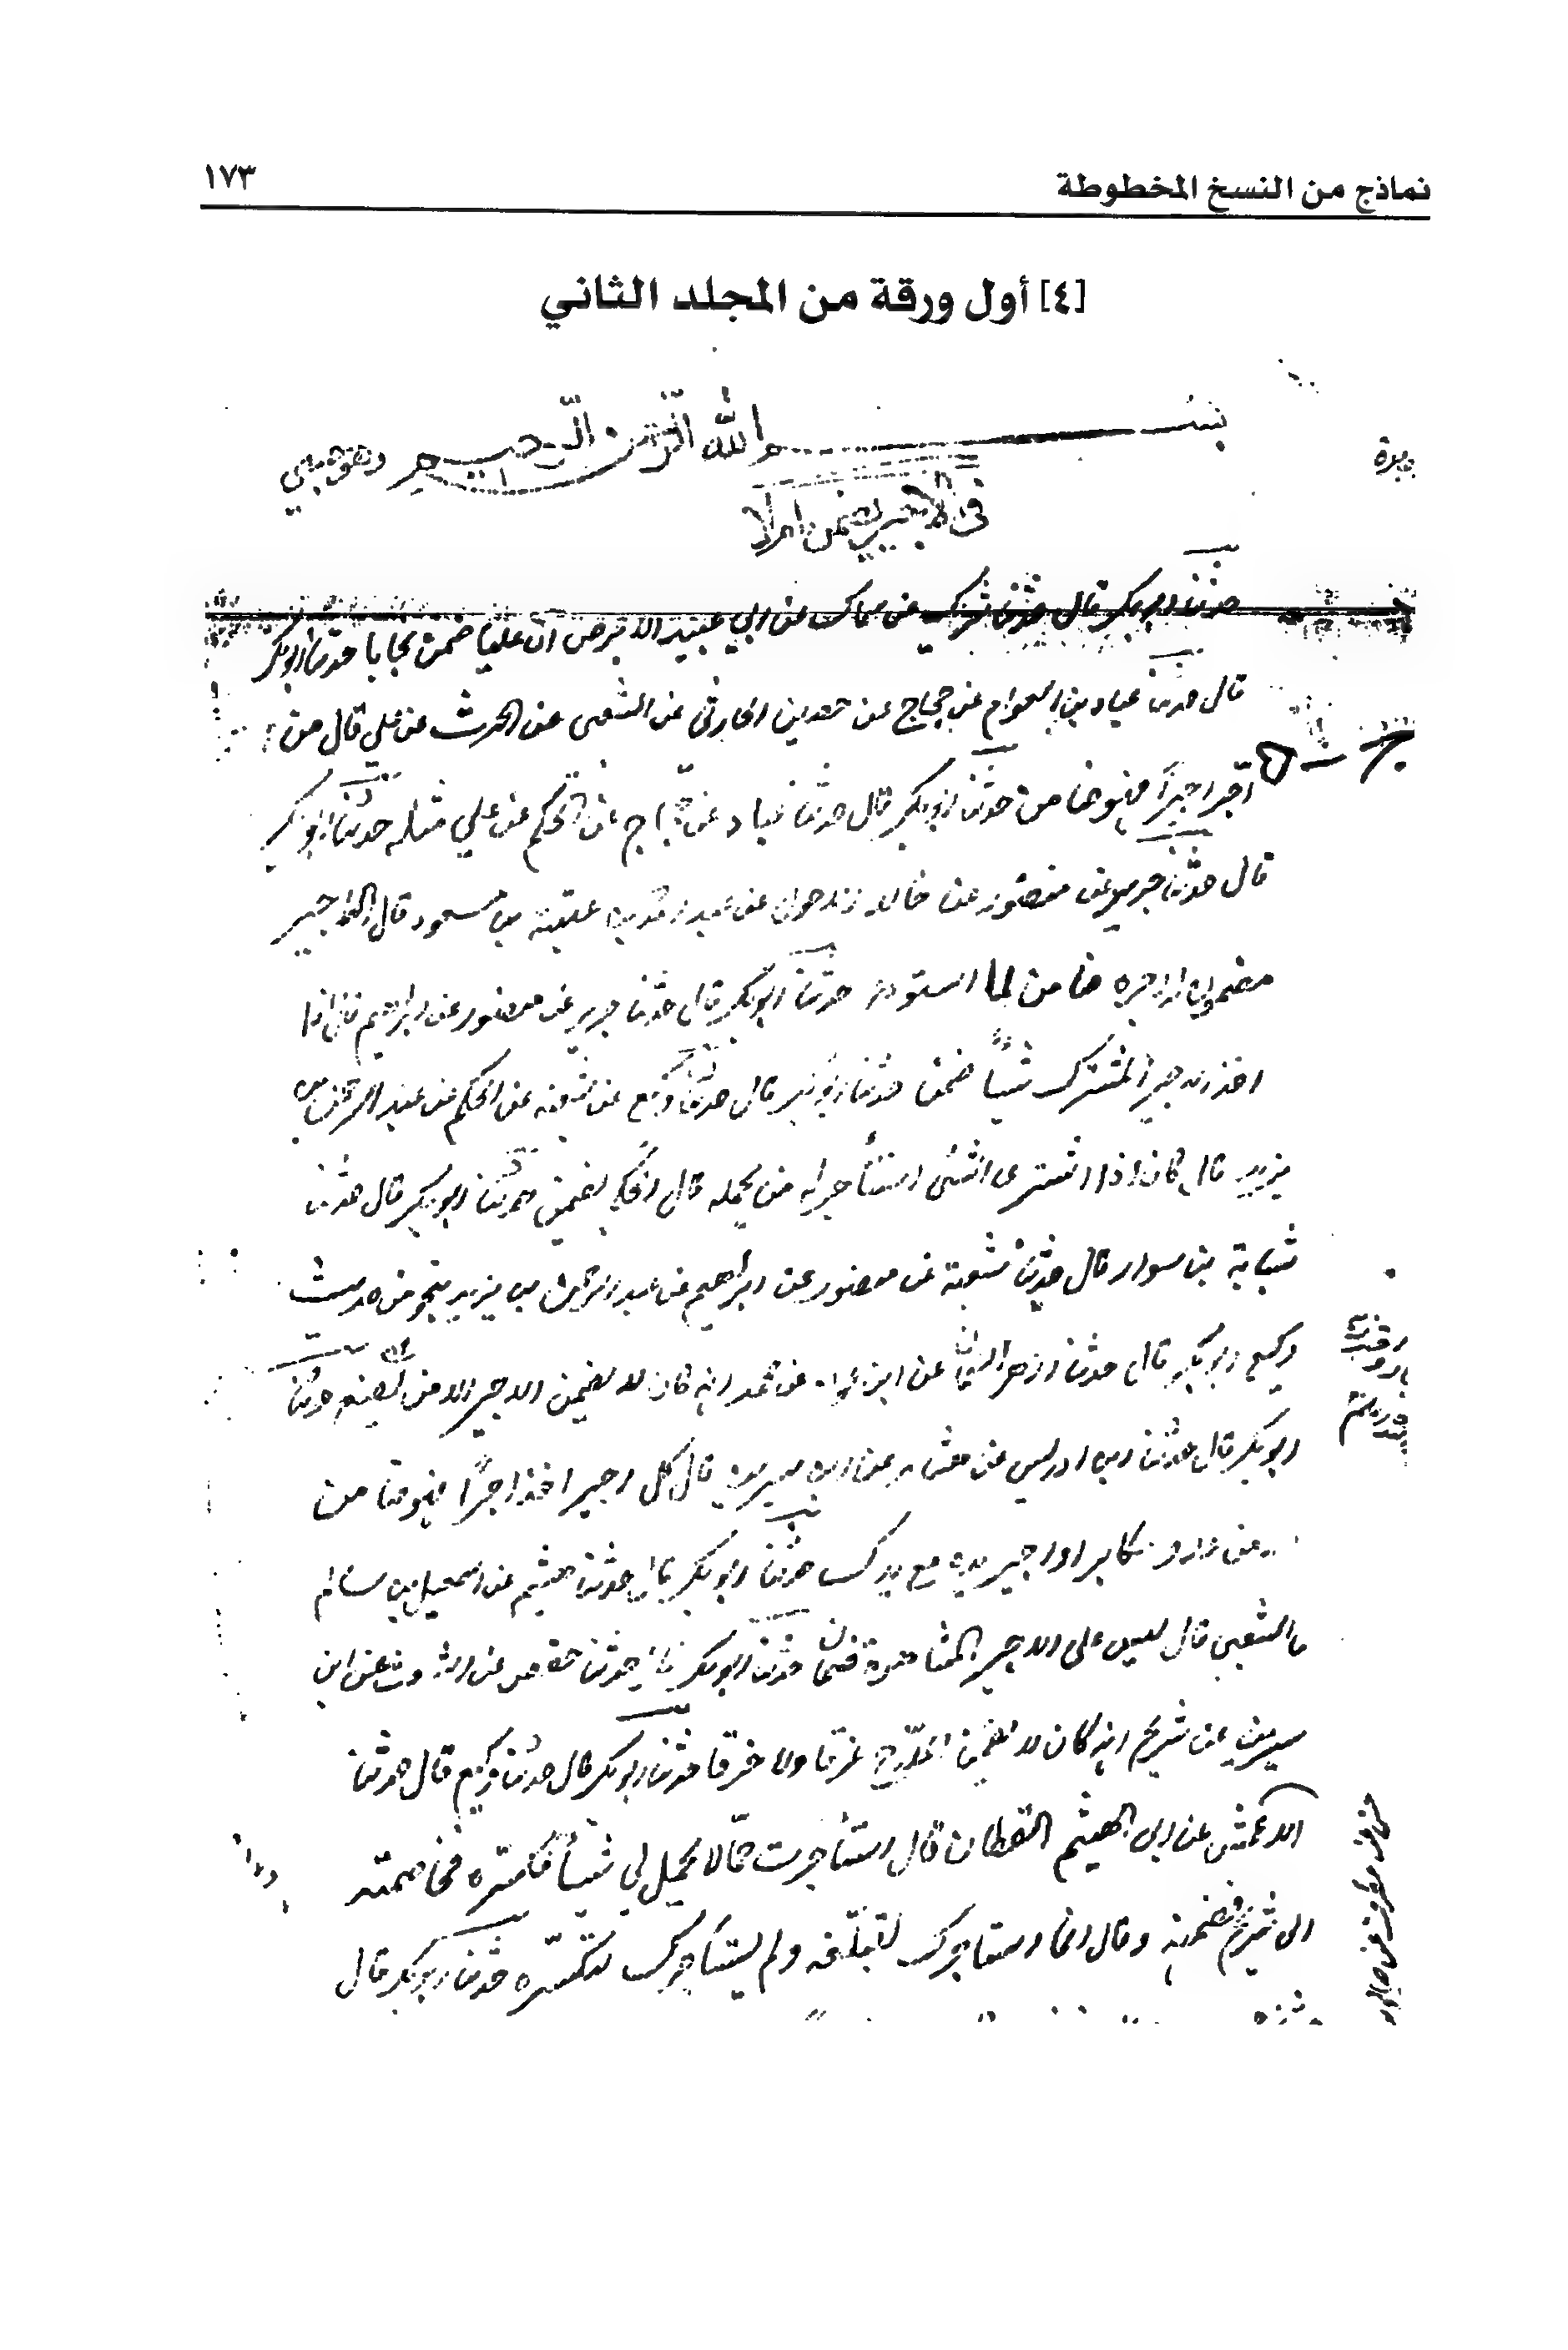 نماذج من النسخ المخطوطة ١٧٣
[٤] أول ورقة من المجلد الثاني
بسم الله الرحمن الرحيم وهو حسبي
في الاجير يضمن ام لا
حدثنا ابو بكر قال حدثنا شريك عن سماك عن ابي عبيد الابرص ان عليا ضمن نجارا حدثنا ابو بكر
قال حدثنا عباد بن العوام عن حجاج عن حصين الحارثي عن الشعبي عن الحرث عن علي قال من
اجر اجيرا فهو ضامن حدثنا ابو بكر قال حدثنا عباد عن حجاج عن الحكم عن علي مثله حدثنا ابو بكر
قال حدثنا جرير عن منصور عن خالد عن عتبة بن مسعود قال الاجير
مضمون له اجره ضامن لما استودع حدثنا ابو بكر قال حدثنا جرير عن منصور عن ابراهيم قال اذا
اخذ الاجير المشترك شيئا ضمن حدثنا ابو بكر قال حدثنا وكيع عن شعبة عن الحكم عن عبد الرحمن بن
يزيد قال كان اذا اشترى الشئ استأجر له من يحمله قال الحكم يضمن حدثنا ابو بكر قال حدثنا
شبابة بن سوار قال حدثنا شعبة عن منصور عن ابراهيم عن عبد الرحمن بن يزيد بنحو من حديث
وكيع ابو بكر قال حدثنا ازهر السمان عن ابن عون عن محمد انه كان لا يضمن الاجير الا من تضييع حدثنا
ابو بكر قال حدثنا ابن ادريس عن هشام عن ابن سيرين قال كل اجير اخذ اجرا فهو ضامن
الا من عدو مكابر او اجير يده مع يدك حدثنا ابو بكر قال حدثنا هشيم عن اسمعيل بن سالم
عن الشعبي قال ليس على الاجير المشاهرة ضمان حدثنا ابو بكر قال حدثنا حفص عن اشعث عن ابن
سيرين عن شريح انه كان لا يضمن الملاح غرقا ولا حرقا حدثنا ابو بكر قال حدثنا وكيع قال حدثنا
الاعمش عن ابي الهيثم القطان قال استأجرت حمالا يحمل لي شيئا فكسره فخاصمته
الى شريح فضمنه وقال انما استأجرك لتبلغه ولم يستأجرك لتكسره حدثنا ابو بكر قال